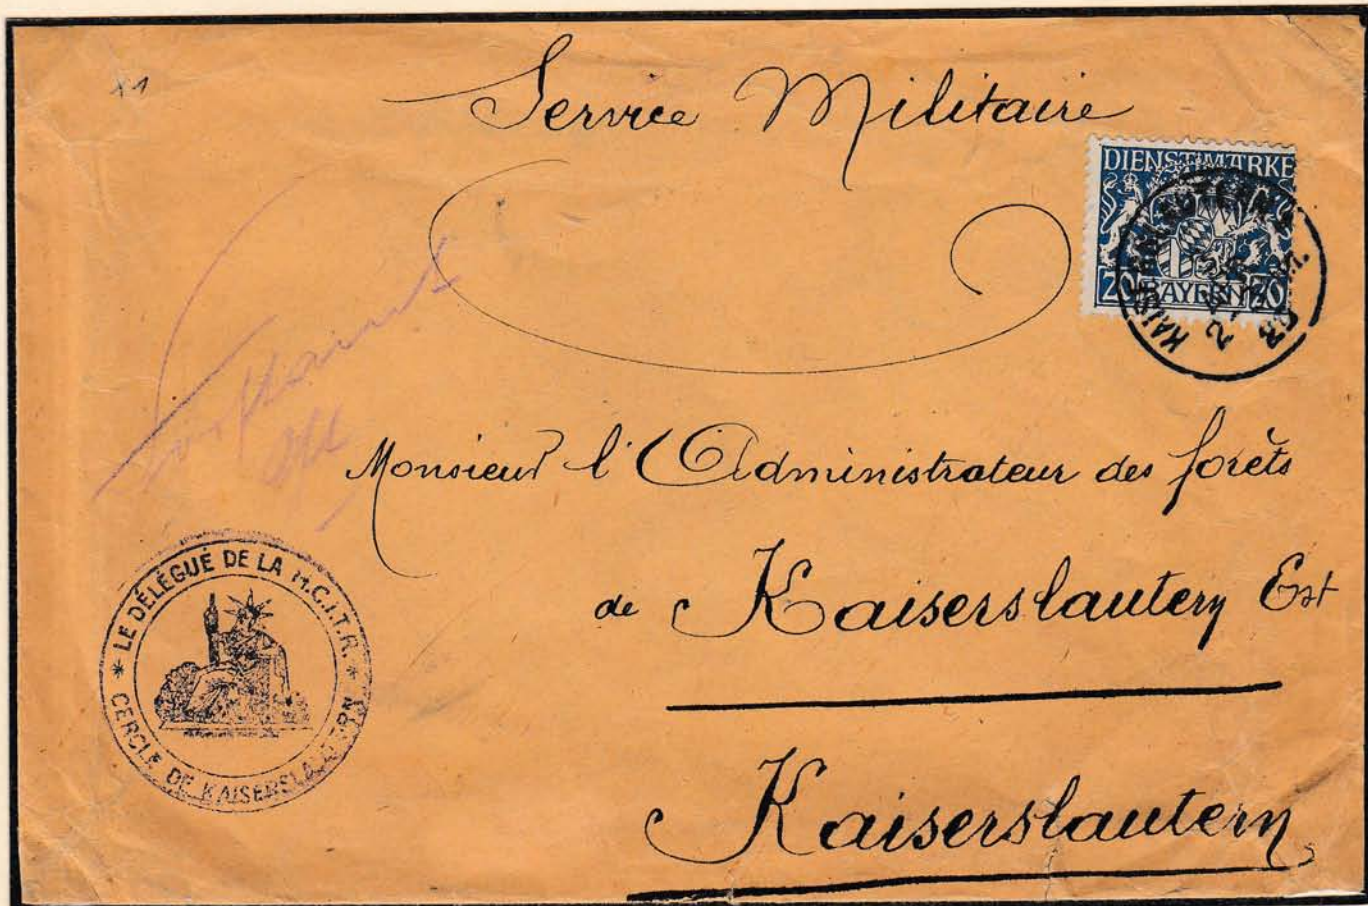 Service Militaire
DIENSTMARKE
20 BAYERN 20
KAISERSLAUTERN
Monsieur l'Administrateur des forèts
de Kaiserslautern Est
Kaiserslautern
* LE DÉLÉGUÉ DE LA H.C.I.T.R. *
CERCLE DE KAISERSLAUTERN